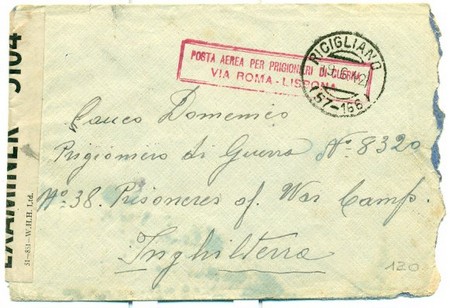 EXAMINER 5164
51-851-W.H.H. Ltd.
POSTA AEREA PER PRIGIONIERI DI GUERRA
VIA ROMA-LISBONA
RICIGLIANO
(57-166)
Cauco Domenico
Prigioniero di Guerra Nº 8320
Nº 38. Prisoneres of War Camp.
Inghilterra
120